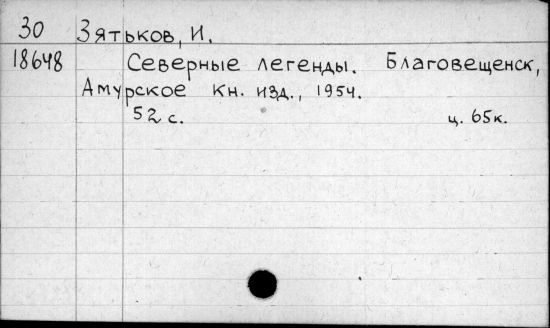 30 Зятьков, И.
18648 Северные легенды. Благовещенск,
Амурское кн. изд., 1954.
52 с. ц. 65к.